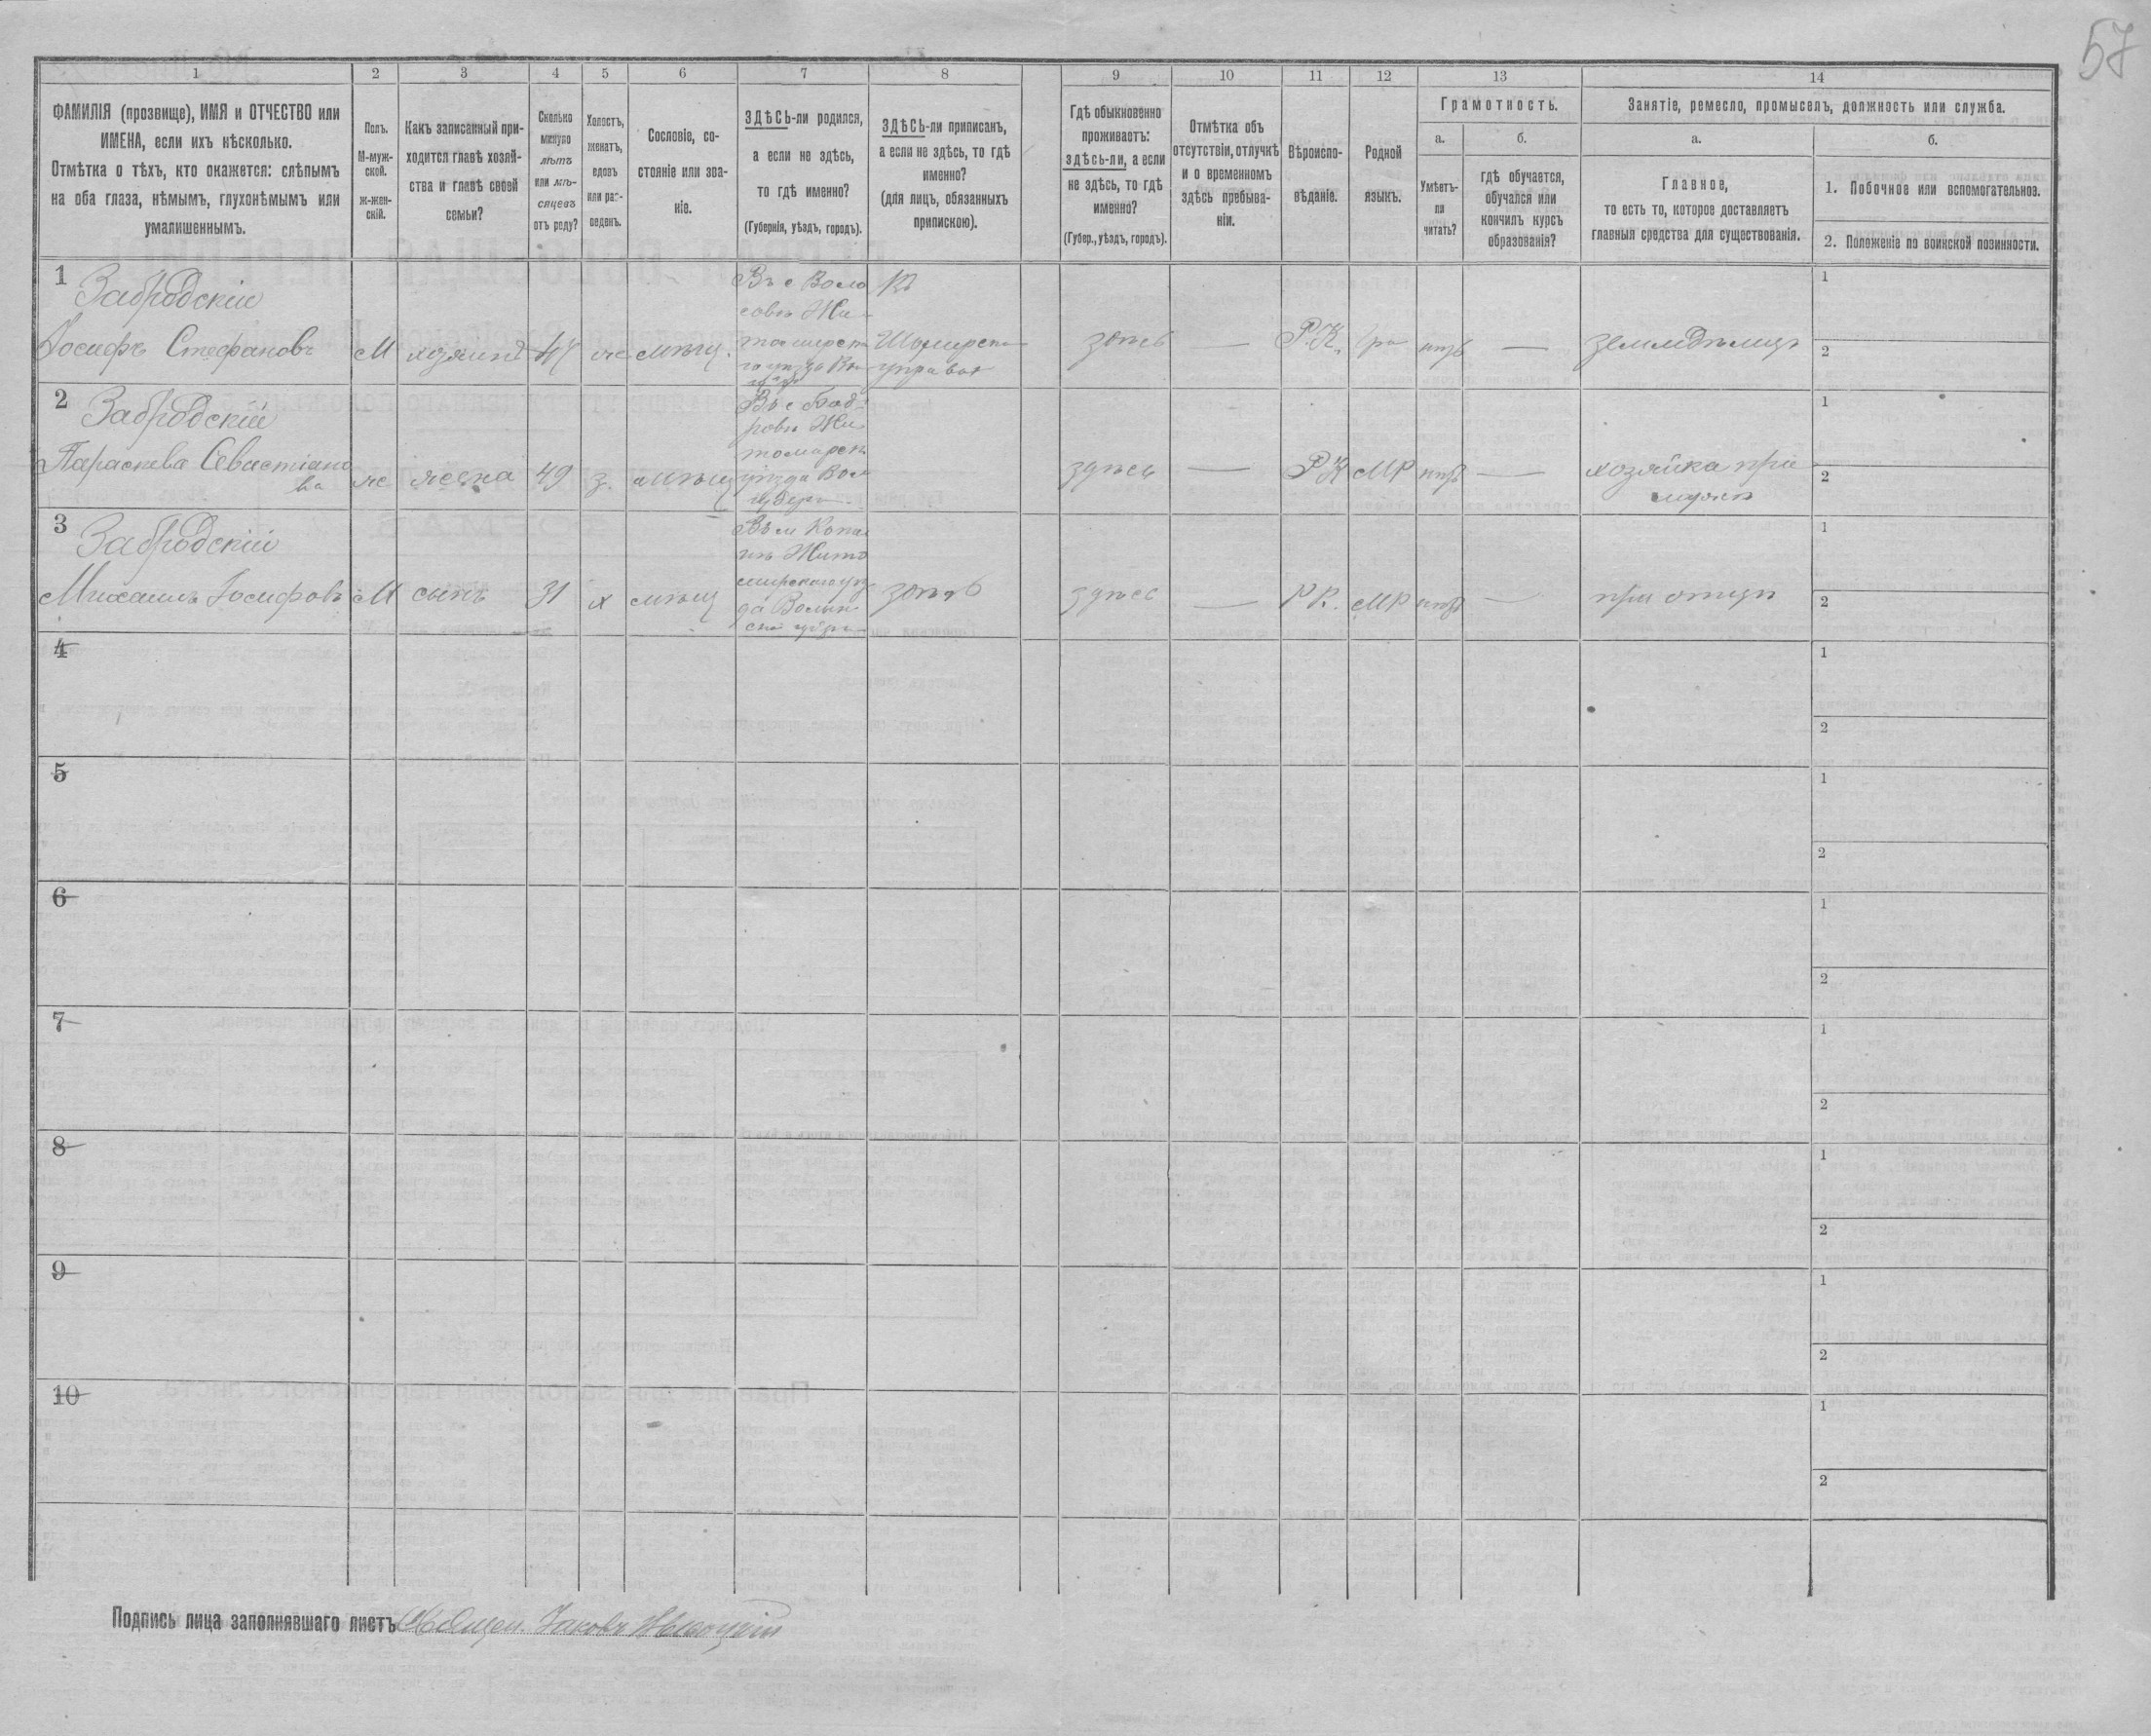 57
1 2 3 4 5 6 7 8 9 10 11 12 13 14
ФАМИЛІЯ (прозвище), ИМЯ и ОТЧЕСТВО или
ИМЕНА, если ихъ нѣсколько.
Отмѣтка о тѣхъ, кто окажется: слѣпымъ
на оба глаза, нѣмымъ, глухонѣмымъ или
умалишеннымъ.
Полъ.
М-муж-
ской.
ж-жен-
скій.
Какъ записанный при-
ходится главѣ хозяй-
ства и главѣ своей
семьи?
Сколько
минуло
лѣтъ
или мѣ-
сяцевъ
отъ роду?
Холостъ,
женатъ,
вдовъ
или раз-
веденъ.
Сословіе, со-
стояніе или зва-
ніе.
ЗДѢСЬ-ли родился,
а если не здѣсь,
то гдѣ именно?
(Губернія, уѣздъ, городъ).
ЗДѢСЬ-ли приписанъ,
а если не здѣсь, то гдѣ
именно?
(для лицъ, обязанныхъ
припискою).
Гдѣ обыкновенно
проживаетъ:
здѣсь-ли, а если
не здѣсь, то гдѣ
именно?
(Губер., уѣздъ, городъ).
Отмѣтка объ
отсутствіи, отлучкѣ
и о временномъ
здѣсь пребыва-
ніи.
Вѣроиспо-
вѣданіе.
Родной
языкъ.
Грамотность.
а.
Умѣетъ-
ли
читать?
б.
гдѣ обучается,
обучался или
кончилъ курсъ
образованія?
Занятіе, ремесло, промыселъ, должность или служба.
а.
Главное,
то есть то, которое доставляетъ
главныя средства для существованія.
б.
1. Побочное или вспомогательное.
2. Положеніе по воинской повинности.
1
Забродскій
Іосифъ Стефановъ
М
хозяинъ
47
же
мѣщ.
Въ с
Жи-
здѣсь
—
Р.К.
нѣтъ
—
земледѣлецъ
1
2
2
Забродскій
Параскева Севастіано
ва
же
жена
49
з.
мѣщ
Въ с
Жи
уѣзда Вол
губерн
здѣсь
—
РК
МР
нѣтъ
—
хозяйка при
мужѣ
1
2
3
Забродскій
Михаилъ Іосифовъ
М
сынъ
31
х
мѣщ
Въ м
Жито
мирскаго уѣз
да Волын
ской губер
здѣсь
здѣсь
—
РК.
МР
нѣтъ
—
при отцѣ
1
2
4
1
2
5
1
2
6
1
2
7
1
2
8
1
2
9
1
2
10
1
2
Подпись лица заполнявшаго листъ Священ. Іаковъ